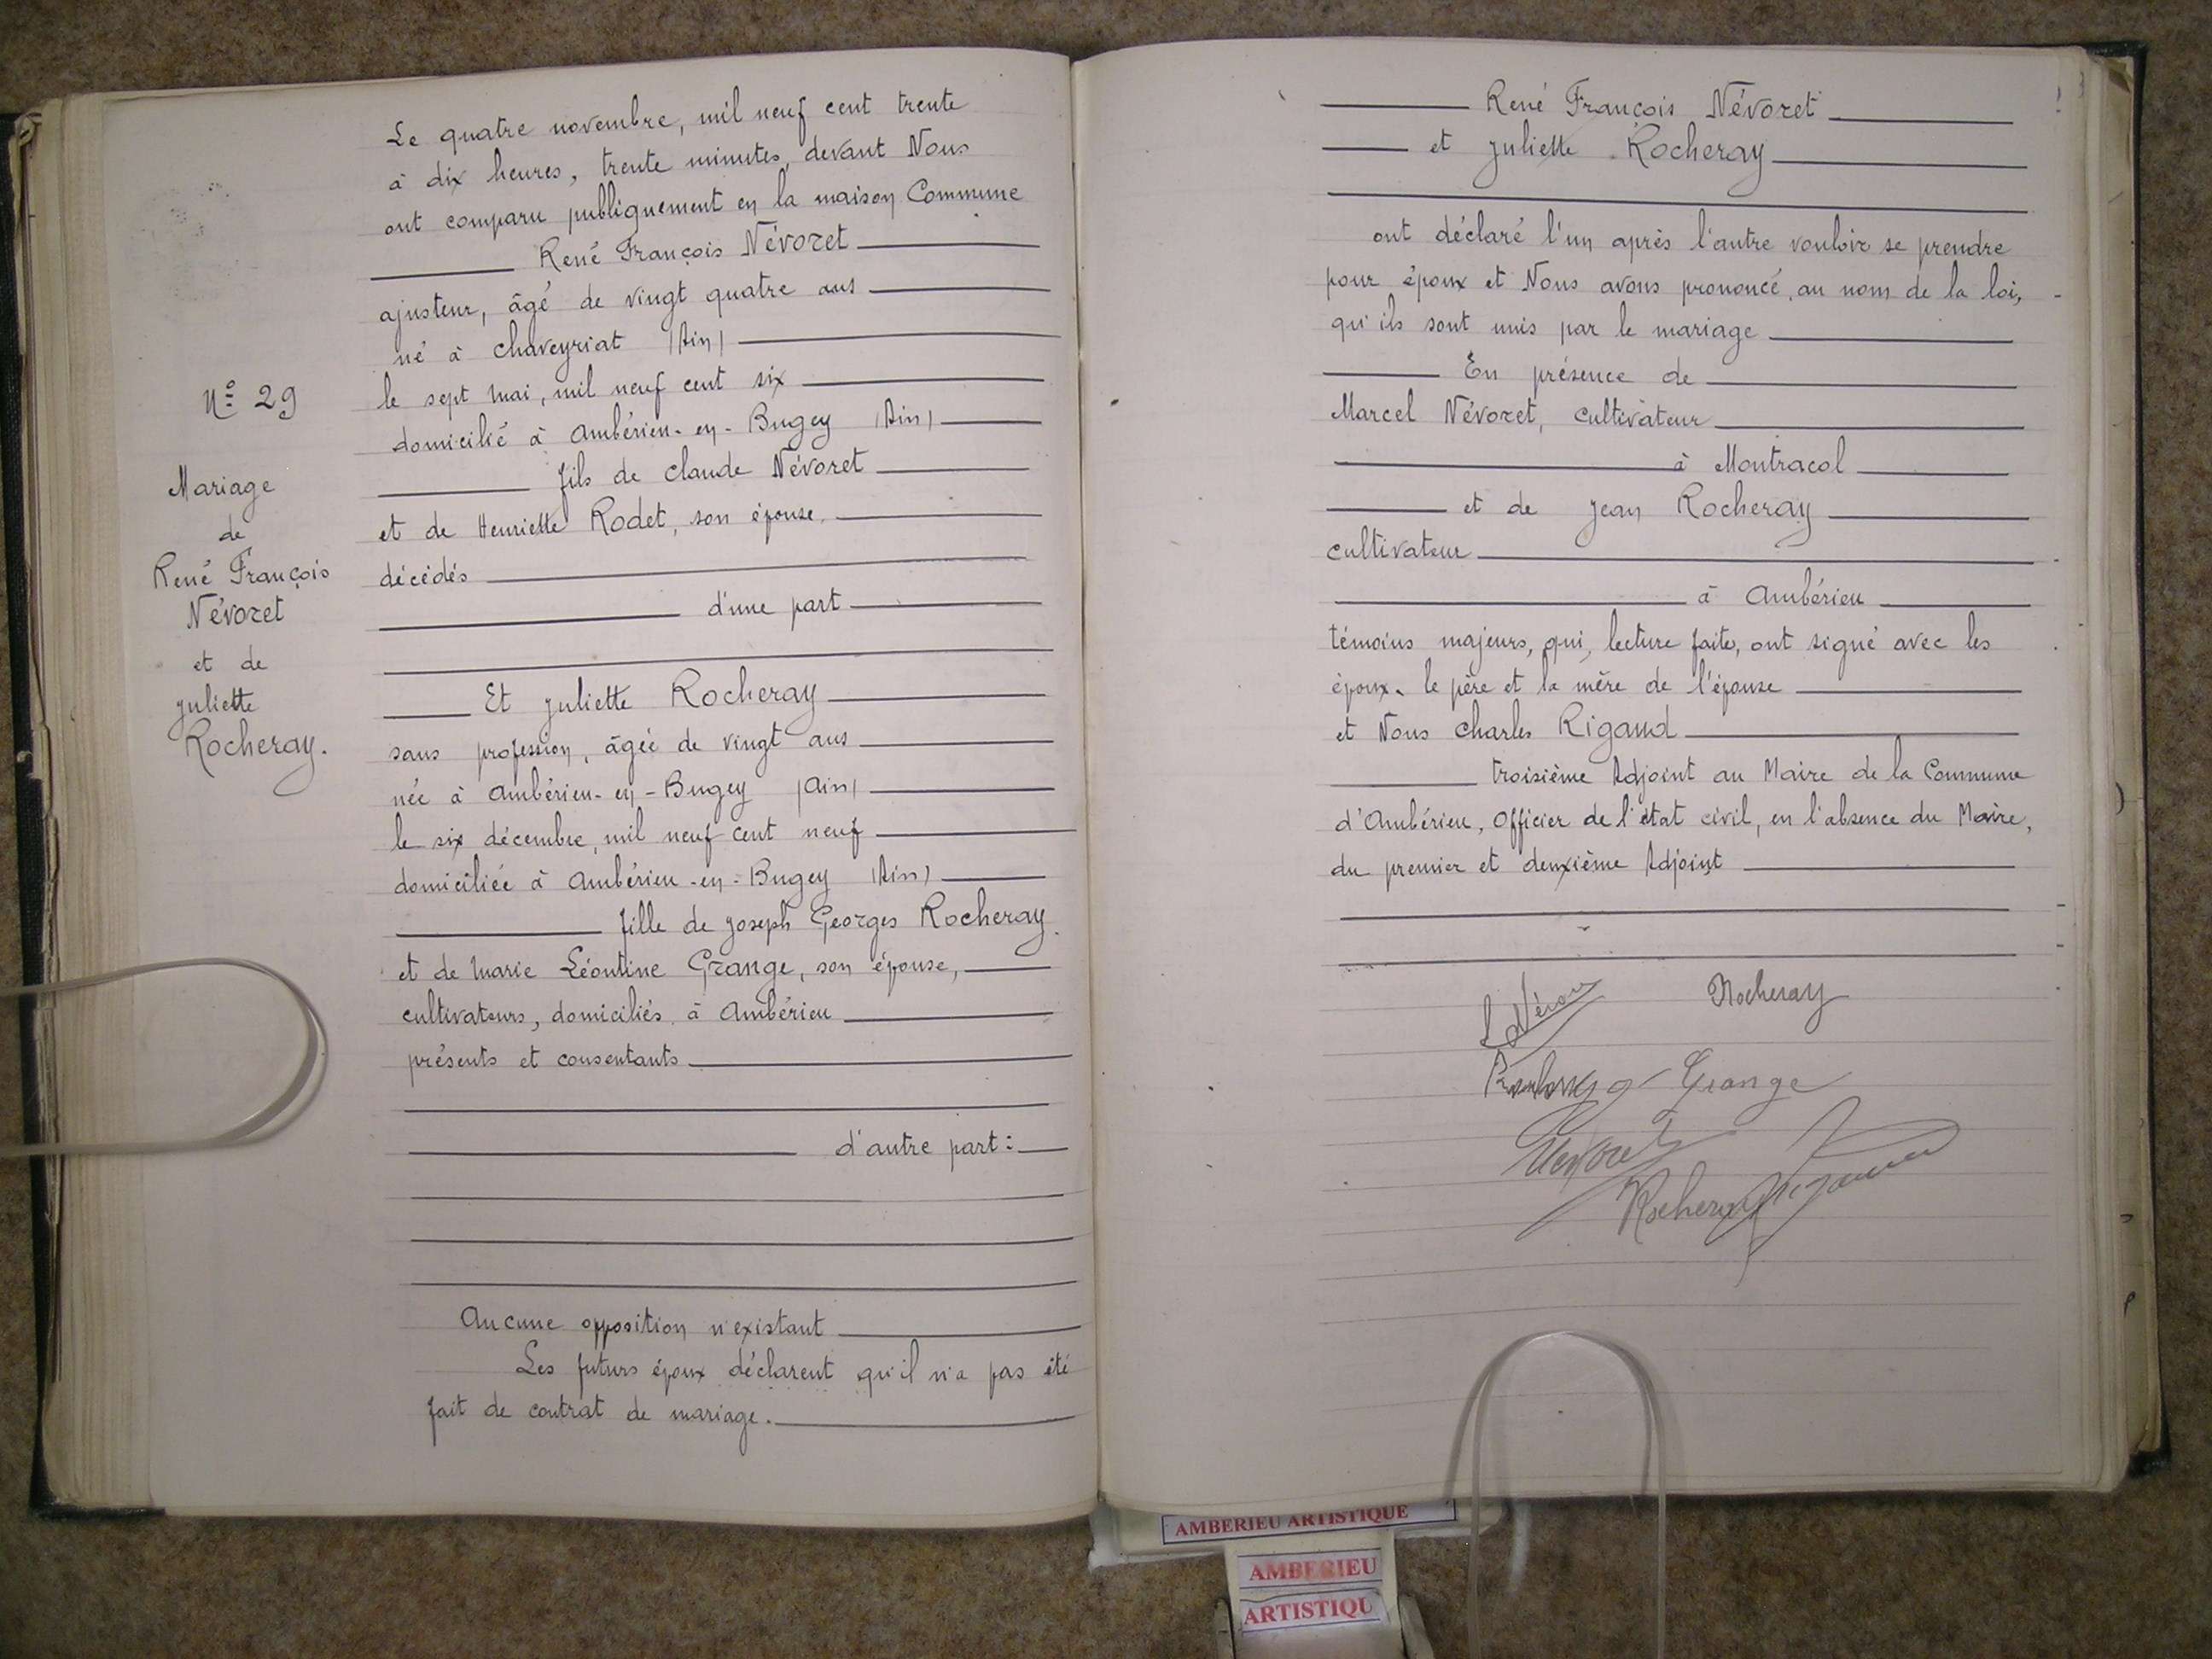 N° 29
Mariage
de
René François
Névoret
et de
Juliette
Rocheray.
Le quatre novembre, mil neuf cent trente
à dix heures, trente minutes, devant Nous
ont comparu publiquement en la maison Commune
René François Névoret
ajusteur, âgé de vingt quatre ans
né à Chaveyriat (Ain)
le sept Mai, mil neuf cent six
domicilié à Ambérieu-en-Bugey (Ain)
fils de Claude Névoret
et de Henriette Rodet, son épouse,
décédés
d'une part
Et Juliette Rocheray
sans profession, âgée de vingt ans
née à Ambérieu-en-Bugey (Ain)
le six décembre, mil neuf cent neuf
domiciliée à Ambérieu-en-Bugey (Ain)
fille de Joseph Georges Rocheray
et de Marie Léontine Grange, son épouse,
cultivateurs, domiciliés à Ambérieu
présents et consentants
d'autre part :
Aucune opposition n'existant
Les futurs époux déclarent qu'il n'a pas été
fait de contrat de mariage.
René François Névoret
et Juliette Rocheray
ont déclaré l'un après l'autre vouloir se prendre
pour époux et Nous avons prononcé, au nom de la loi,
qu'ils sont unis par le mariage
En présence de
Marcel Névoret, cultivateur
à Montracol
et de Jean Rocheray
cultivateur
à Ambérieu
témoins majeurs, qui, lecture faite, ont signé avec les
époux, le père et la mère de l'épouse
et Nous Charles Rigaud
troisième Adjoint au Maire de la Commune
d'Ambérieu, Officier de l'état civil, en l'absence du Maire,
du premier et deuxième Adjoint
Rocheray
Grange
Nevoret
Rocheray
AMBERIEU ARTISTIQUE
AMBERIEU
ARTISTIQU